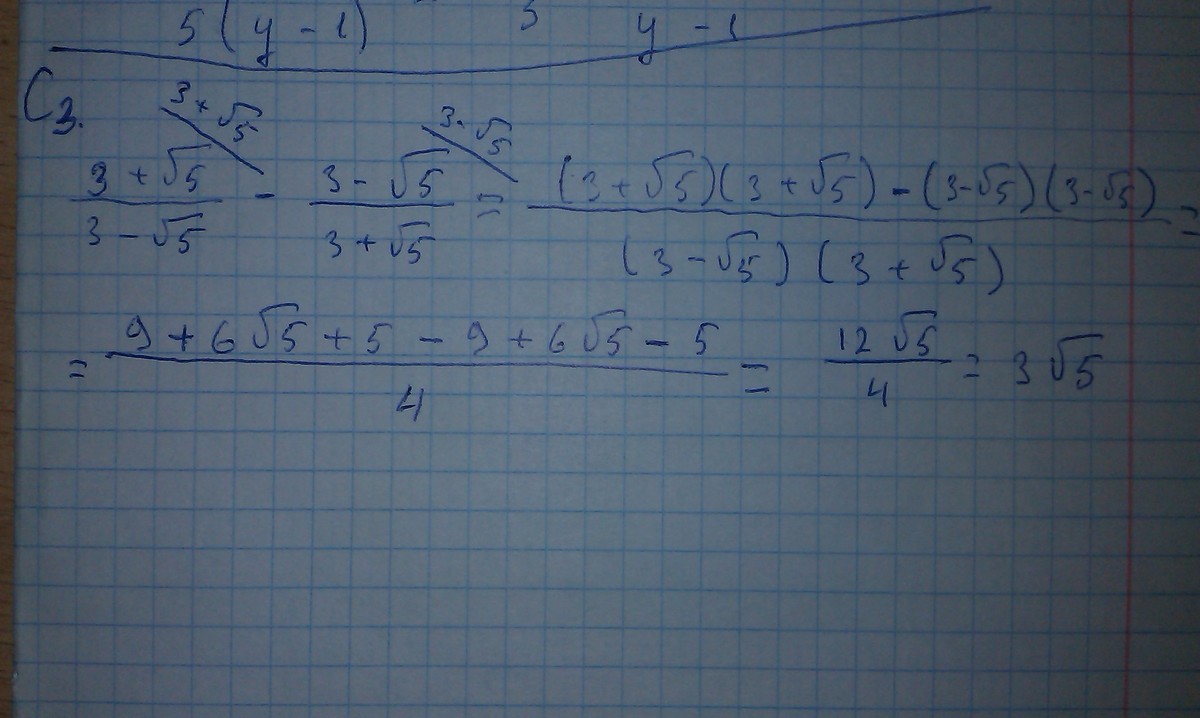 5(y-1) 5 y-1
C3.
3+√5 3-√5
(3+√5)/(3-√5) - (3-√5)/(3+√5) = ((3+√5)(3+√5)-(3-√5)(3-√5))/((3-√5)(3+√5)) =
= (9+6√5+5-9+6√5-5)/4 = 12√5/4 = 3√5